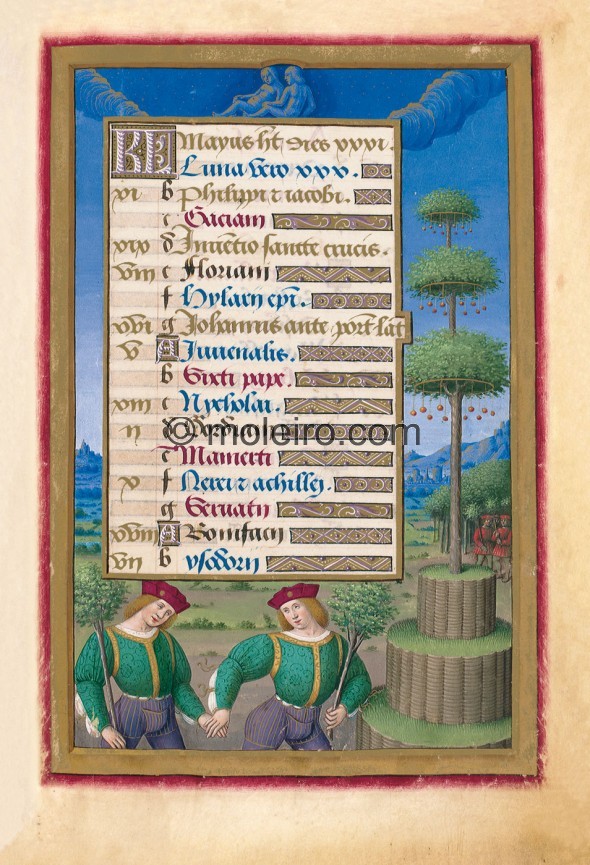 KL Mayus ht dies xxxi.
Luna vero xxx.
xi b Philippi ⁊ iacobi.
c Gaciani
xix d Inuētio sancte crucis.
viii e Floriani
f Hylarii epi.
xvi g Johannis ante port lat
v A Iuuenalis.
b Sixti pape.
xiii c Nycholai.
ii d
© moleiro.com
e Mamerti
x f Nerei ⁊ achillei.
g Seruatii
xviii A Bonifacii
vii b ysodorii